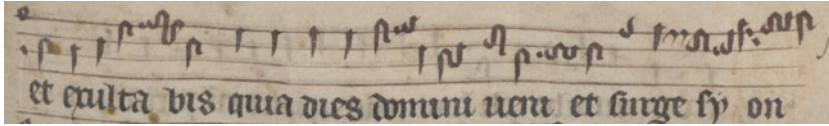 et exulta bis quia dies domini ueni et surge sy on